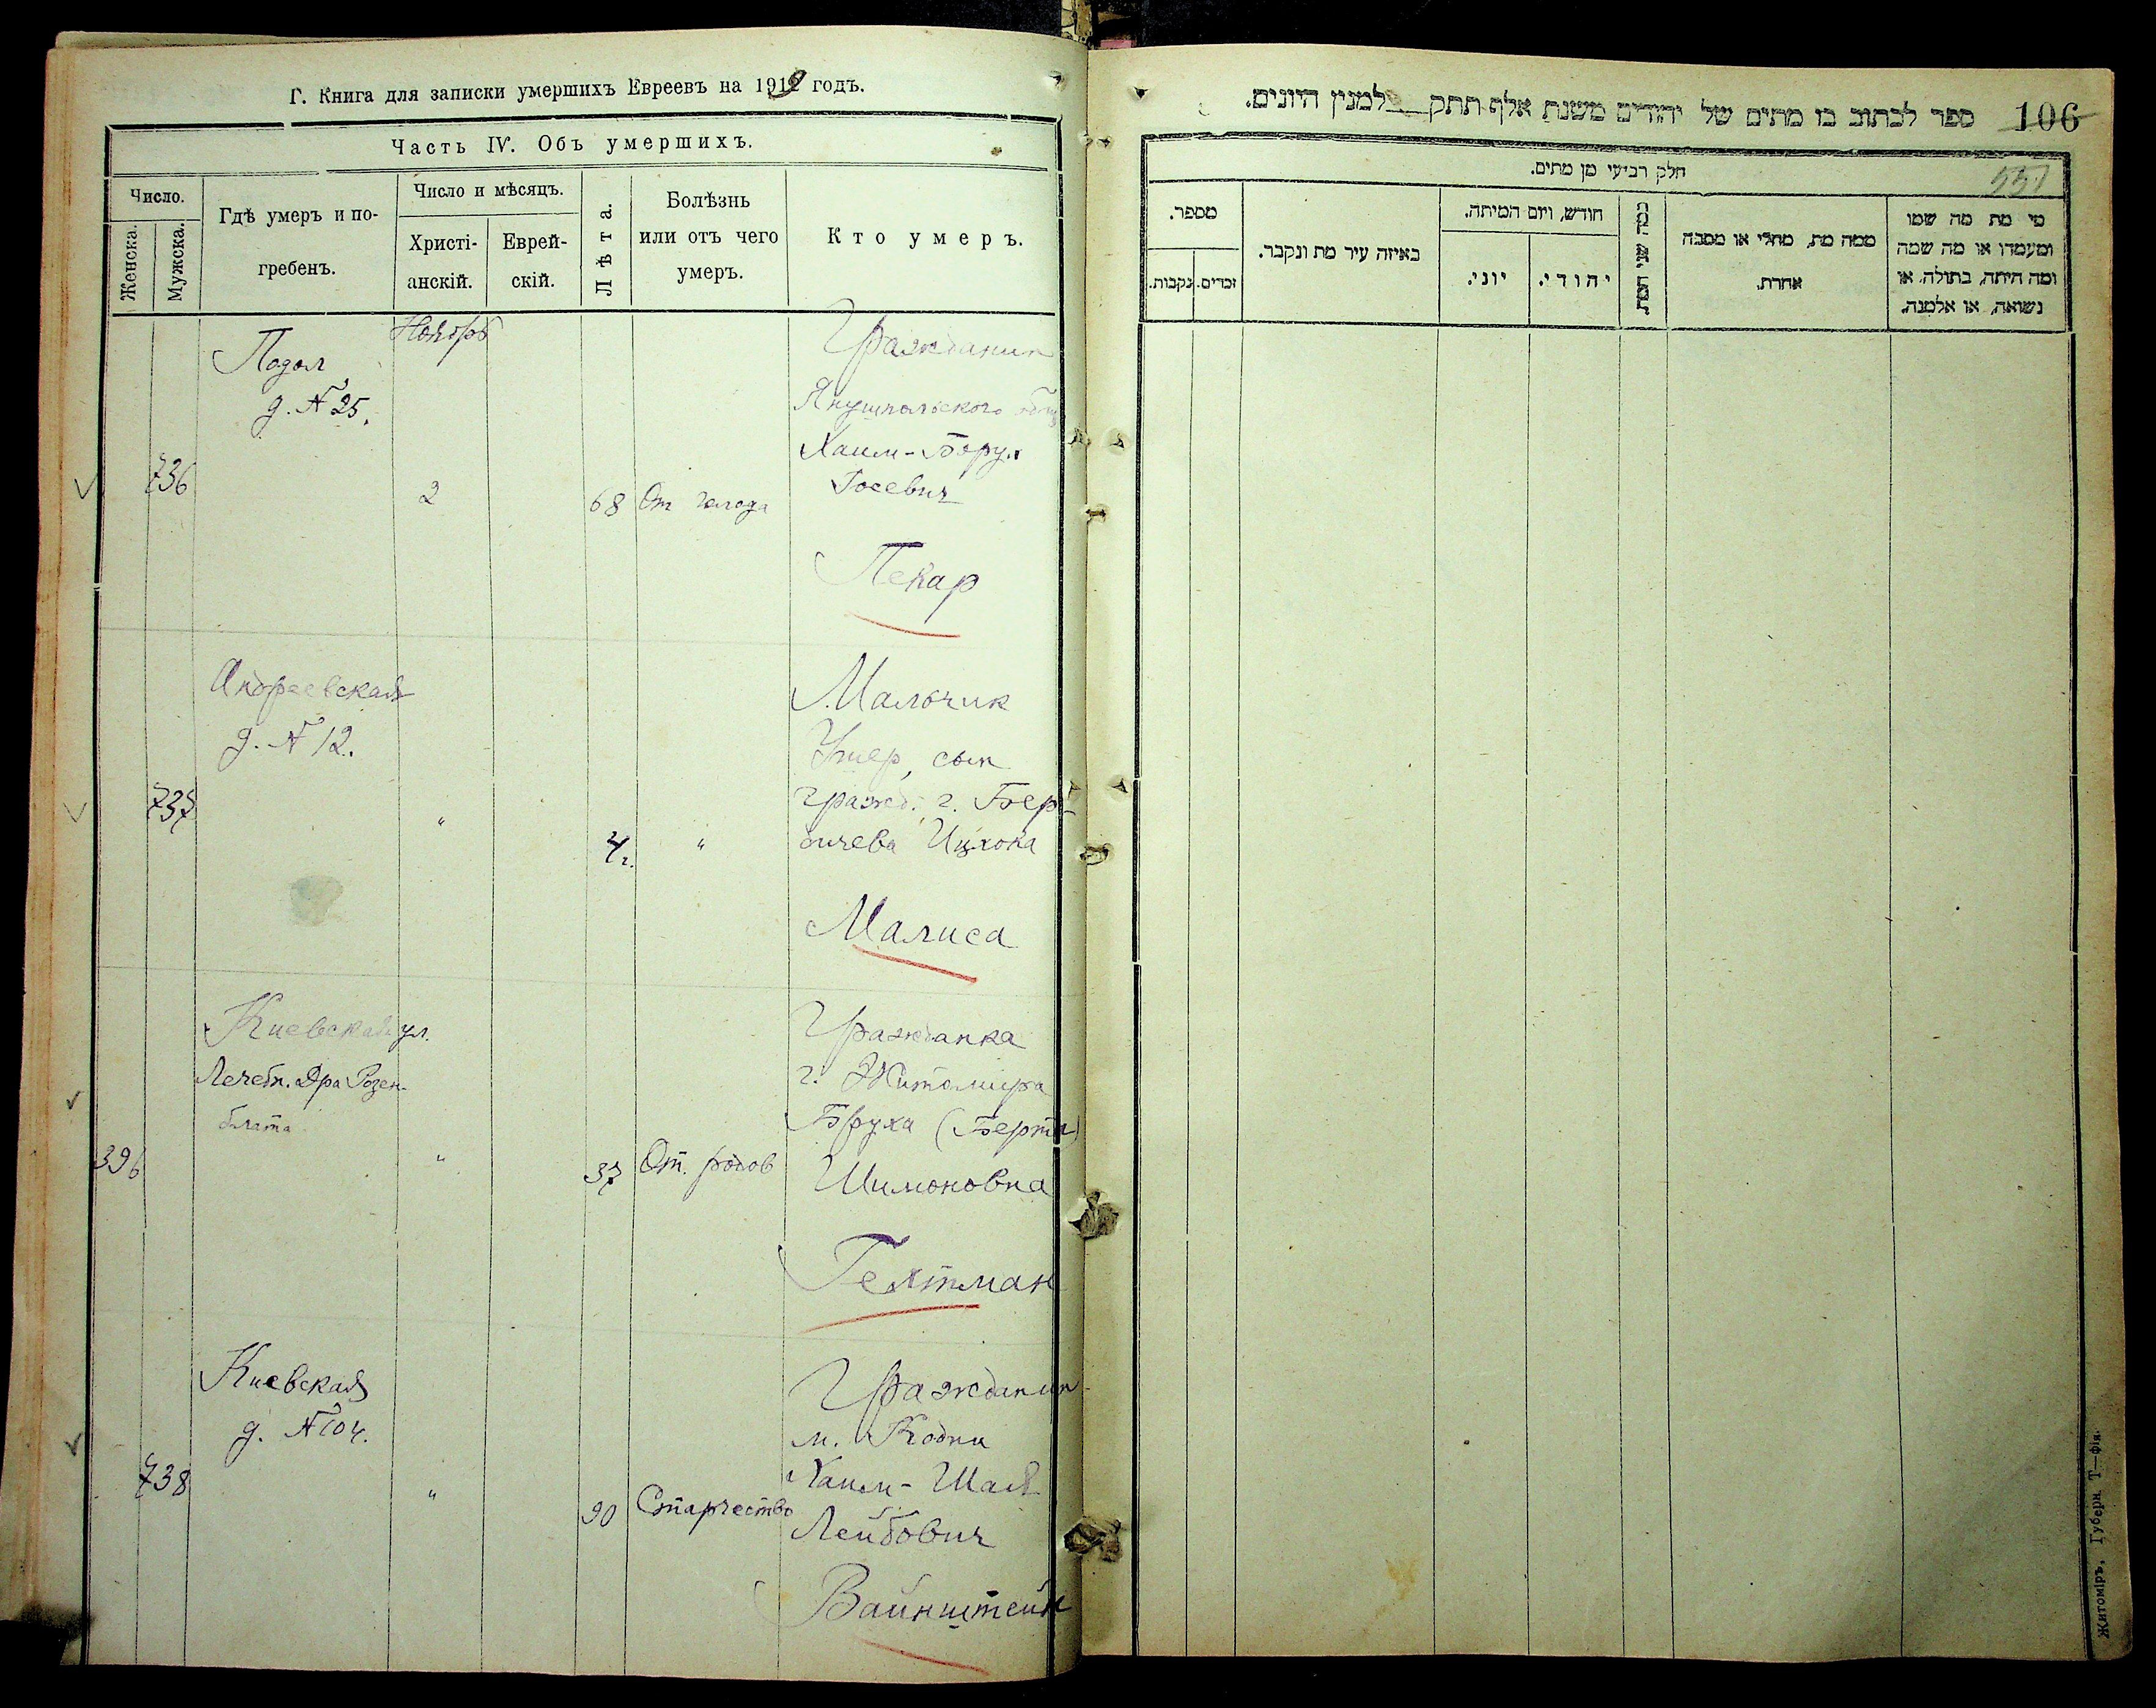 Г. Книга для записки умершихъ Евреевъ на 1919 годъ.
Часть IV. Объ умершихъ.
Число.
Женска.
Мужска.
Гдѣ умеръ и по-
гребенъ.
Число и мѣсяцъ.
Христі-
анскій.
Еврей-
скій.
Лѣта.
Болѣзнь
или отъ чего
умеръ.
Кто умеръ.
Подол
д. № 25.
736
Ноябрь
2
68
От голода
Гражданин
Янушпольского общ
Хаим-Борух
Иосевич
Пекар
Андреевская
д. № 12.
737
"
4 г.
"
Мальчик
Умер, сын
гражд. г. Бер-
дичева Ицхока
Малиса
Киевская ул.
Лечебн. Дра Розен-
блата
396
"
37
От родов
Гражданка
г. Житомира
Бруха (Берта)
Шимоновна
Гехтман
Киевская
д. № 104.
738
"
90
Старчество
Гражданин
м. Кодни
Хаим-Шая
Лейбович
Вайнштейн
ספר לכתוב בו מתים של יהודים משנת אלף תתק למנין היונים.
106
551
חלק רביעי מן מתים.
מספר.
נקבות.
זכרים.
באיזה עיר מת ונקבר.
חודש, ויום המיתה.
יוני.
יהודי.
כמה שני המת.
ממה מת, מחלי או מסבה
אחרת.
מי מת מה שמו
ומעמדו או מה שמה
ומה היתה, בתולה, או
נשואה, או אלמנה.
Житоміръ, Губерн. Т—фія.